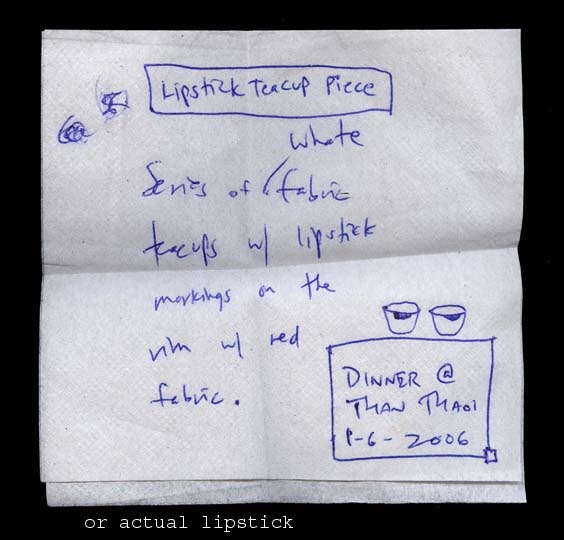 Lipstick Teacup Piece
white
Series of / fabric
teacups w/ lipstick
markings on the
rim w/ red
fabric.
DINNER @
THAN THAOI
1-6-2006
or actual lipstick